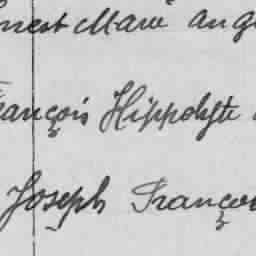 nest Marie Ang
rançois Hippolyte
Joseph Françoi